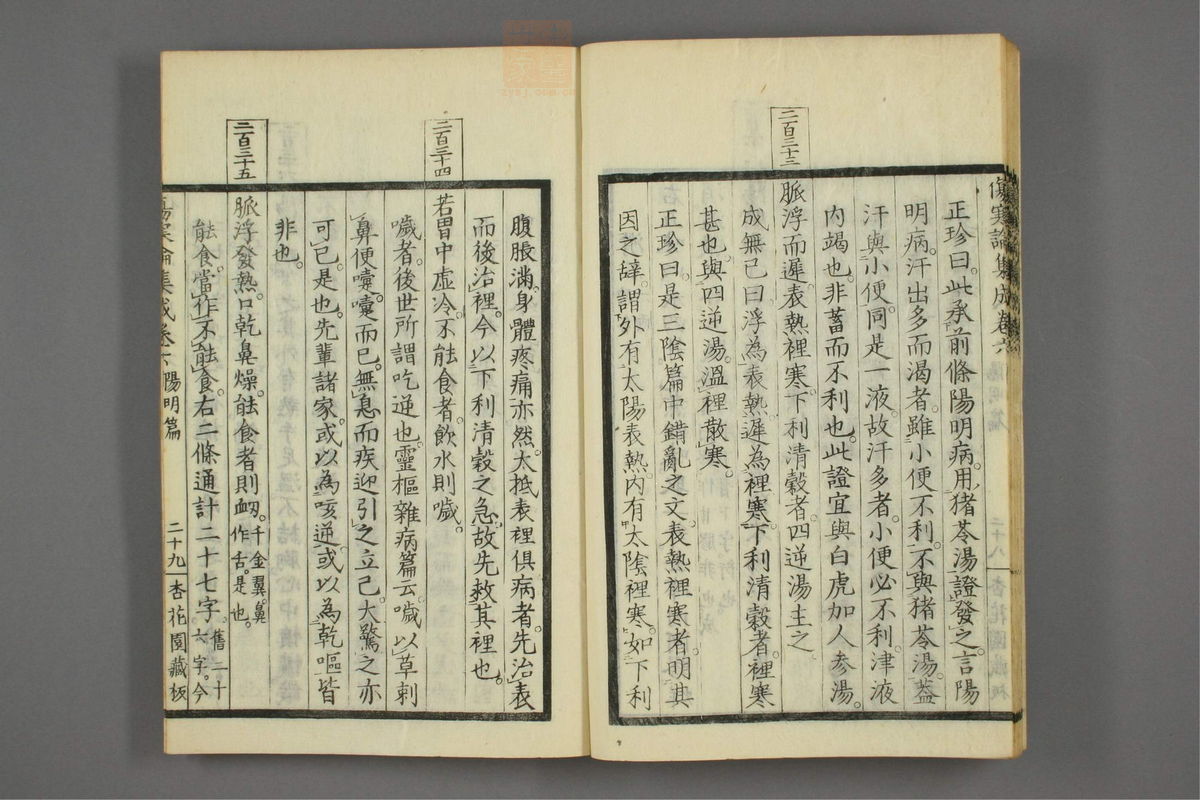 傷寒論集成卷六
正珍曰。此承前條陽明病。用猪苓湯證發之。言陽
明病。汗出多而渴者。雖小便不利。不與猪苓湯。蓋
汗與小便。同是一液。故汗多者。小便必不利。津液
内竭也。非蓄而不利也。此證宜與白虎加人參湯。
二百三十三
脈浮而遲。表熱裡寒。下利清穀者。四逆湯主之。
成無己曰。浮為表熱。遲為裡寒。下利清穀者。裡寒
甚也。與四逆湯。溫裡散寒。
正珍曰。是三陰篇中錯亂之文。表熱裡寒者。明其
因之辞。謂外有太陽表熱。內有太陰裡寒。如下利
腹脹滿。身體疼痛亦然。大抵表裡俱病者。先治表
而後治裡。今以下利清穀之急。故先救其裡也。
二百三十四
若胃中虛冷。不能食者。飲水則噦。
噦者。後世所謂吃逆也。靈樞雜病篇云。噦。以草刺
鼻。便嚏。嚏而已。無息而疾迎引之。立已。大驚之。亦
可已。是也。先輩諸家。或以為咳逆。或以為乾嘔。皆
非也。
二百三十五
脈浮發熱。口乾鼻燥。能食者則衄。千金翼。鼻
作舌。是也。
能食。當作不能食。右二條通計二十七字。舊二十
六字。今
傷寒論集成卷六 陽明篇 二十九 杏花園藏板
zysj.com.cn